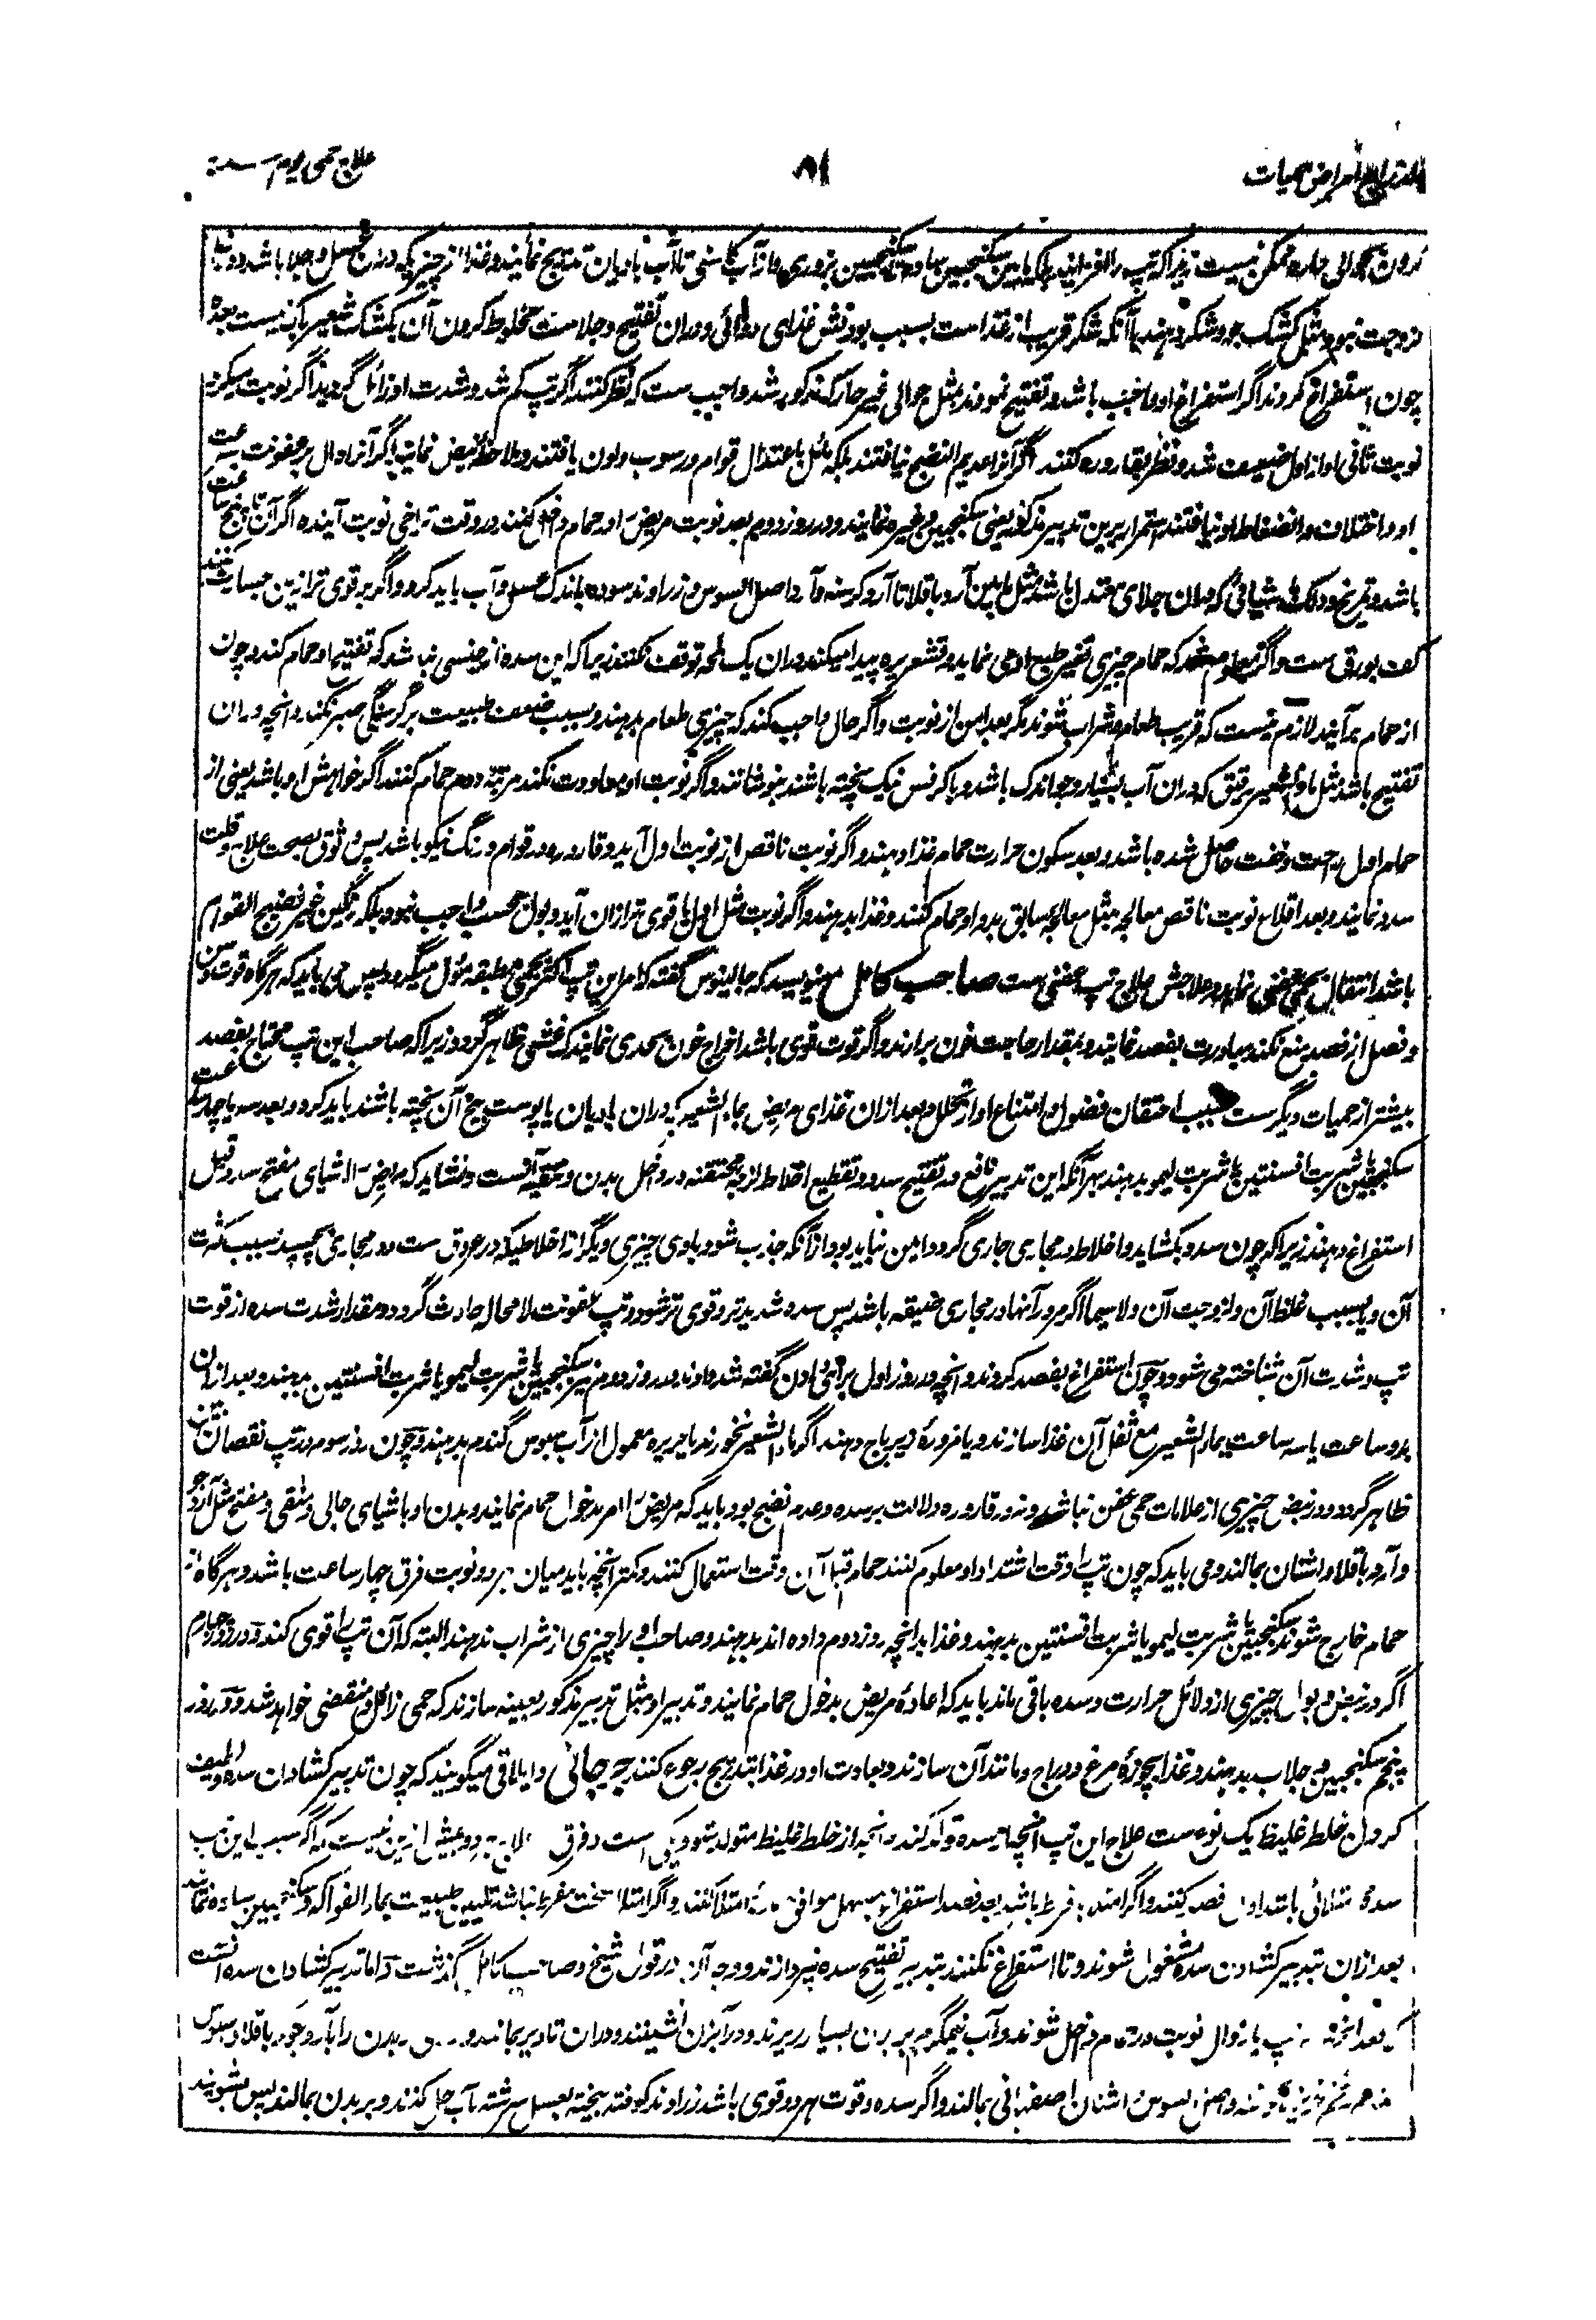 امراض حمیات
۸۱
علاج حمی یوم
چون استفراغ کردند اگر استفراغ او واجب باشد و تفتیح نمودند بمثل جوالی غیر حار که مذکور شد واجب ست که نظر کنند اگر تپ کم شد و شدت او زائل گردید اگر نوبت میکند
نوبت ثانی او از اول ضعیف شد و نظر بقاروره کنند اگر آنرا عدیم النضج نیافتند بلکه مائل باعتدال قوام و رسوب و لون یافتند و ملاحظه نبض نمایند اگر آنرا دال بر عفونت
او و اختلاف و انضغاط او نیافتند استمرار برین تدبیر مذکور یعنی سکنجبین و غیره نمایند و در روز دوم بعد نوبت مریض را در حمام داخل کنند در وقت تراخی نوبت آینده اگر آن تا پنج ساعت
باشد و تمریخ و دلک باشیائی که دران جلای معتدل باشد مثل آرد باقلا تا آرد کرسنه و آرد اصل السوس و زراوند سوده باندک عسل و آب باید کرد و اگر بر قوی تر ازین جسارت کنند
کف بورقی ست و اگر معلوم شد که حمام چیزی تغیر طبع او می نماید و قشعریره پیدا میکند دران یک لمحه توقف نکنند زیرا که این سده از جنسی نباشد که تفتیح او حمام کند و چون
از حمام برآیند لازم نیست که قریب طعام و شراب شوند مگر بعد امن از نوبت و اگر حال واجب کند که چیزی طعام بدهند و بسبب ضعف طبیعت بر گرسنگی صبر نکند و آنچه دران
تفتیح باشد مثل ماء الشعیر رقیق که دران آب بسیار و جو اندک باشد و با کرفس نیک پخته باشند بنوشانند و اگر نوبت او معاودت نکند مرتبه دوم حمام کنند اگر خواهش او باشد یعنی از
حمام اول راحت و خفت حاصل شده باشد و بعد سکون حرارت حمام غذا دهند و اگر نوبت ناقص از نوبت اول آید و قاروره در قوام و رنگ نیکو باشد پس وثوق بصحت علاج و قلت
سده نمایند و بعد اقلاع نوبت ناقص معالجه بمثل معالجه سابق بدو و حمام کنند و غذا بدهند و اگر نوبت مثل اول یا قوی تر ازان آید و بول بحسب واجب نبود بلکه رنگین غیر نضیج القوام
باشد انتقال بحمی عفنی نماید و علاجش علاج تپ عفنی ست صاحب کامل مینویسد که جالینوس گفته که امر این تپ اکثر بحمی مطبقه مؤل میگردد پس می باید که هرگاه قوت و سن
و فصل از فصد منع نکند مبادرت بفصد نمایند و بمقدار حاجت خون برآرند و اگر قوت قوی باشد اخراج خون بحدی نمایند که غشی ظاهر گردد زیرا که صاحب این تپ محتاج بفصد
بیشتر از حمیات دیگر ست بسبب احتقان فضول و امتناع او از تحلل و بعد ازان غذای مریض بماء الشعیر که دران بادیان یا پوست بیخ آن پخته باشند باید کرد و بعد سه یا چهار ساعت
سکنجبین یا شربت افسنتین یا شربت لیمو بدهند بهر آنکه این تدبیر نافع و تفتیح سدد و تقطیع اخلاط لزجه محتقنه در داخل بدن و تنقیه آنست و نشاید که مریض را اشیای مفتح سدد قبل
استفراغ دهند زیرا که چون سدد بکشاید و اخلاط در مجاری جاری گردد ایمن نباید بود از آنکه جذب شود باوی چیزی دیگر از اخلاطیکه در عروق ست و در مجاری بچسپد بسبب کثرت
آن و یا بسبب غلظ آن و لزوجت آن و لاسیما اگر مرور آنها در مجاری ضیقه باشد پس سده شدیدتر و قوی تر شود و تپ عفونت لا محاله حادث گردد و مقدار شدت سده از قوت
تپ و شدت آن شناخته می شود و چون استفراغ بفصد کردند و آنچه در روز اول برای دادن گفته شد دادند در روز دوم نیز سکنجبین یا شربت لیمو یا شربت افسنتین بدهند و بعد ازان
بدو ساعت یا سه ساعت بماء الشعیر مع ثفل آن غذا سازند و یا مزوره زیرباج دهند اگر ماء الشعیر نخورند یا حریره معمول از آب سبوس گندم بدهند و چون روز سوم در تپ نقصان
ظاهر گردد و در نبض چیزی از علامات حمی عفن نباشد و نه در قاروره دلالت بر سده و عدم نضج بود باید که مریض را امر بدخول حمام نمایند و بدن او باشیای جالی و منقی و مفتح مثل آرد جو
و آرد باقلا و اشنان بمالند و می باید که چون تپ را وقت اشتداد او معلوم کنند حمام قبل آن وقت استعمال کنند و کمتر آنچه باید میان هر دو نوبت فرق چهار ساعت باشد و هرگاه از
حمام خارج شوند سکنجبین یا شربت لیمو یا شربت افسنتین بدهند و غذا بدانچه روز دوم داده اند بدهند و صاحب او را چیزی از شراب ندهند البته که آن تپ را قوی کند و در روز چهارم
اگر در نبض و بول چیزی از دلائل حرارت و سده باقی ماند باید که اعاده مریض بدخول حمام نمایند و تدبیر او بمثل تدبیر مذکور بعینه سازند که حمی زائل و منقضی خواهد شد و در روز
پنجم سکنجبین و جلاب بدهند و غذا بچوزه مرغ و دراج و مانند آن سازند و بعادت او در غذا بتدریج رجوع کنند جرجانی و ایلاقی میگویند که چون تدبیر کشادن سده و لطیف
کردن خلط غلیظ یک نوع ست علاج این تپ آنچه از سده تولد کند و آنچه از خلط غلیظ متولد شود یکی است و فرق بیش ازین نیست که اگر سبب این تپ
سده امتلائی باشد اول فصد کنند و اگر امتلا مفرط باشد بعد فصد استفراغ بمسهل موافق ماده امتلا کنند و اگر امتلا سخت مفرط نباشد تلیین طبیعت بماء الفواکه و سکنجبین ساده نمایند
بعد ازان بتدبیر کشادن سده مشغول شوند و تا استفراغ نکنند بتدبیر تفتیح سده نپردازند و وجه آن در قول شیخ و صاحب کامل گذشت و اما تدبیر کشادن سده آنست
تپ یا زوال نوبت در حمام داخل شوند و آب نیمگرم بر بدن بسیار ریزند و در آبزن نشینند و دران تا دیر بمانند و بدن را بآرد جو و باقلا و سبوس
اشنان اصفهانی بمالند و اگر سده و قوت هر دو قوی باشد زراوند کوفته بیخته بعسل سرشته بآب حل کنند و بر بدن بمالند پس بشویند